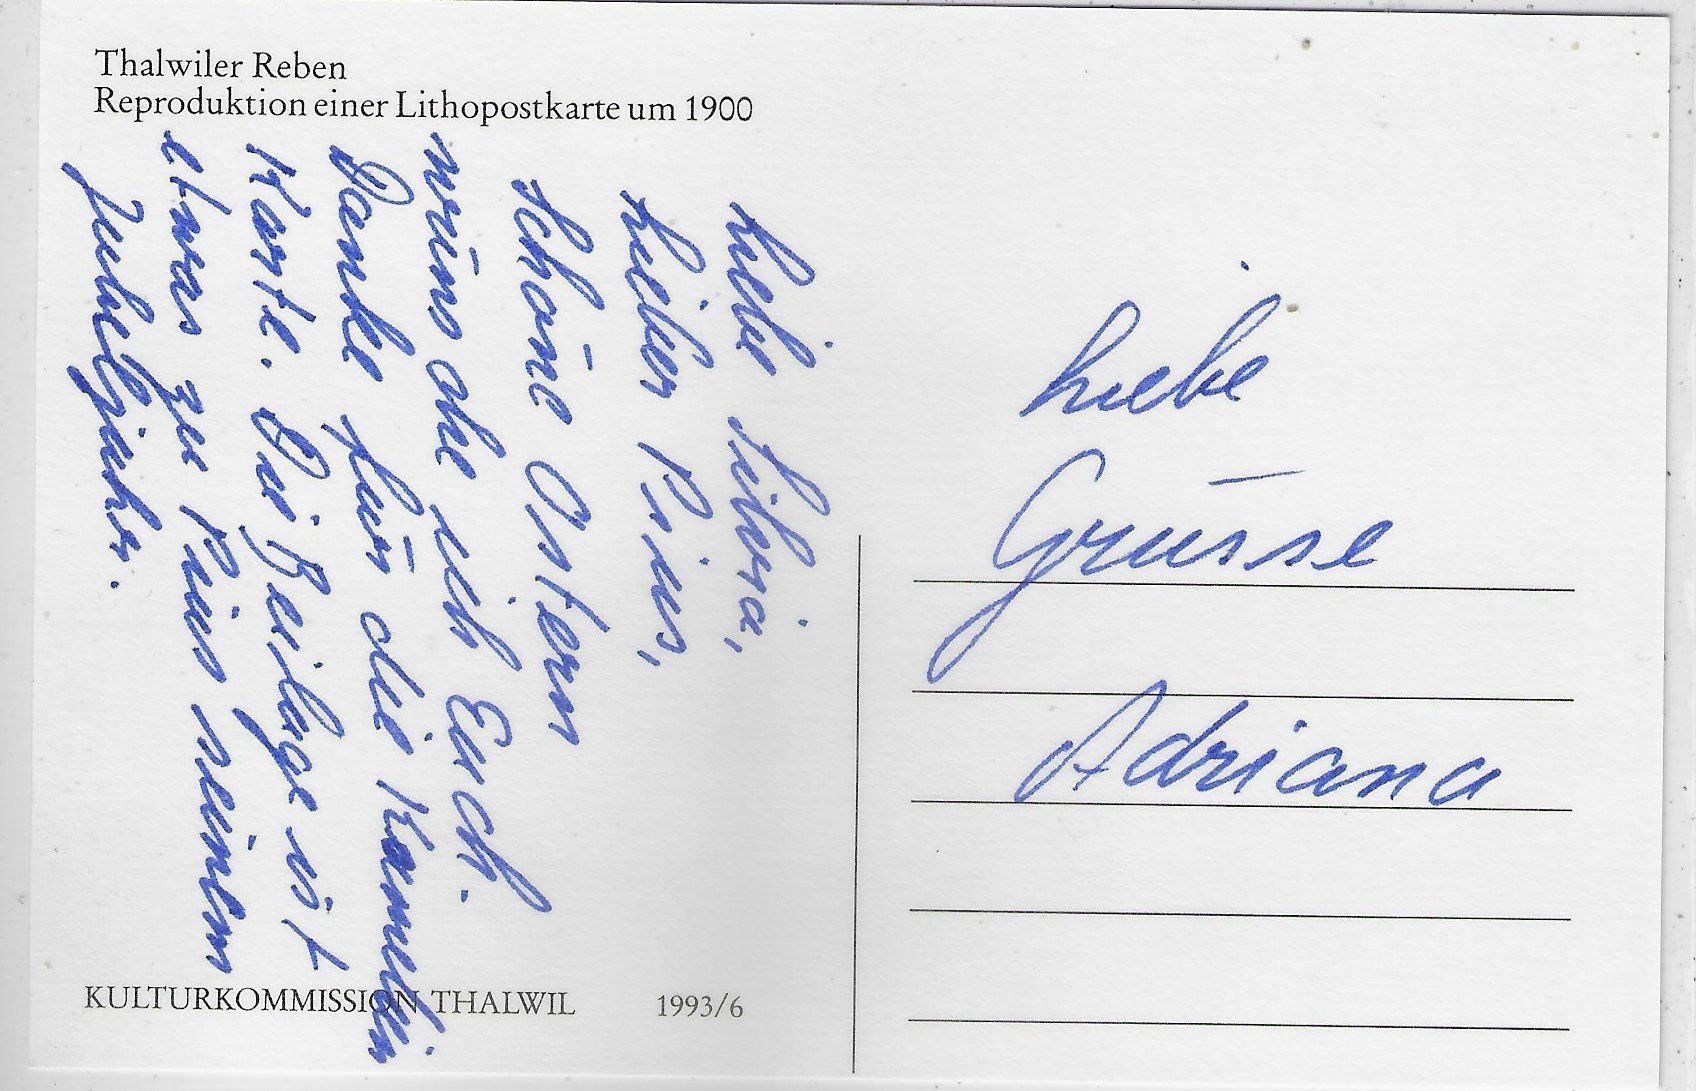 Thalwiler Reben
Reproduktion einer Lithopostkarte um 1900
Liebe Silvia,
Lieber Pius,
schöne Ostern
wünsche ich Euch.
Danke für die Kamelien
Karte. Die Beilage ist
etwas zu Pius seinem
Jubeljahr.
Liebe
Grüsse
Adriana
KULTURKOMMISSION THALWIL 1993/6